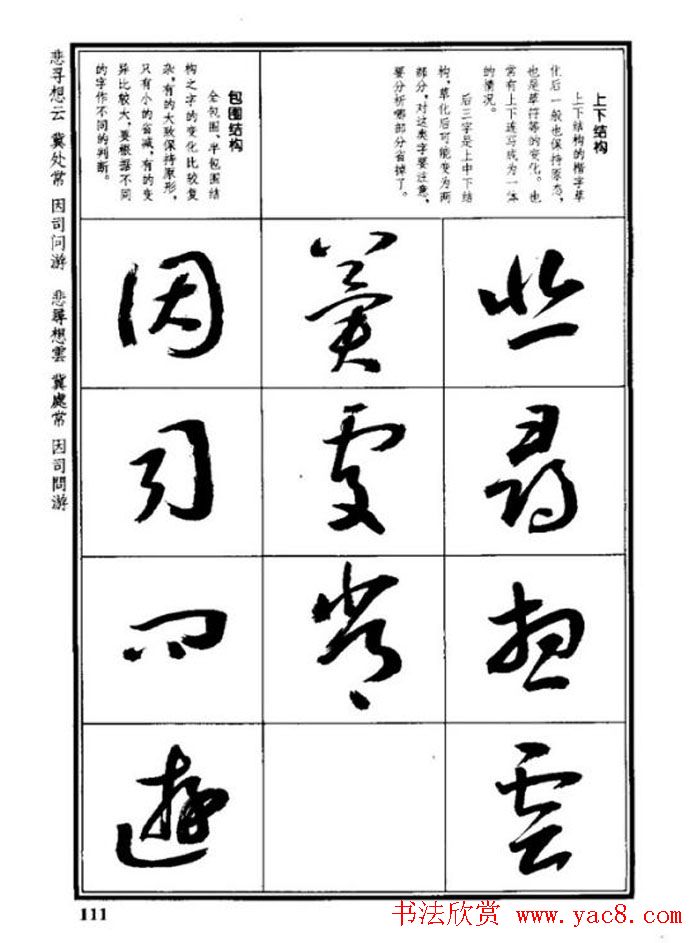 上下结构
上下结构的楷字草
化后一般也保持原态，
也是草符等的变化。也
常有上下连写成为一体
的情况。
后三字是上中下结
构，草化后可能变为两
部分，对这类字要注意，
要分析哪部分省掉了。
包围结构
全包围、半包围结
构之字的变化比较复
杂，有的大致保持原形，
只有小的省减，有的变
异比较大，要根据不同
的字作不同的判断。
悲尋想雲
冀處常
因司問遊
悲寻想云 冀处常 因司问游 悲尋想雲 冀處常 因司問游
111
书法欣赏 www.yac8.com